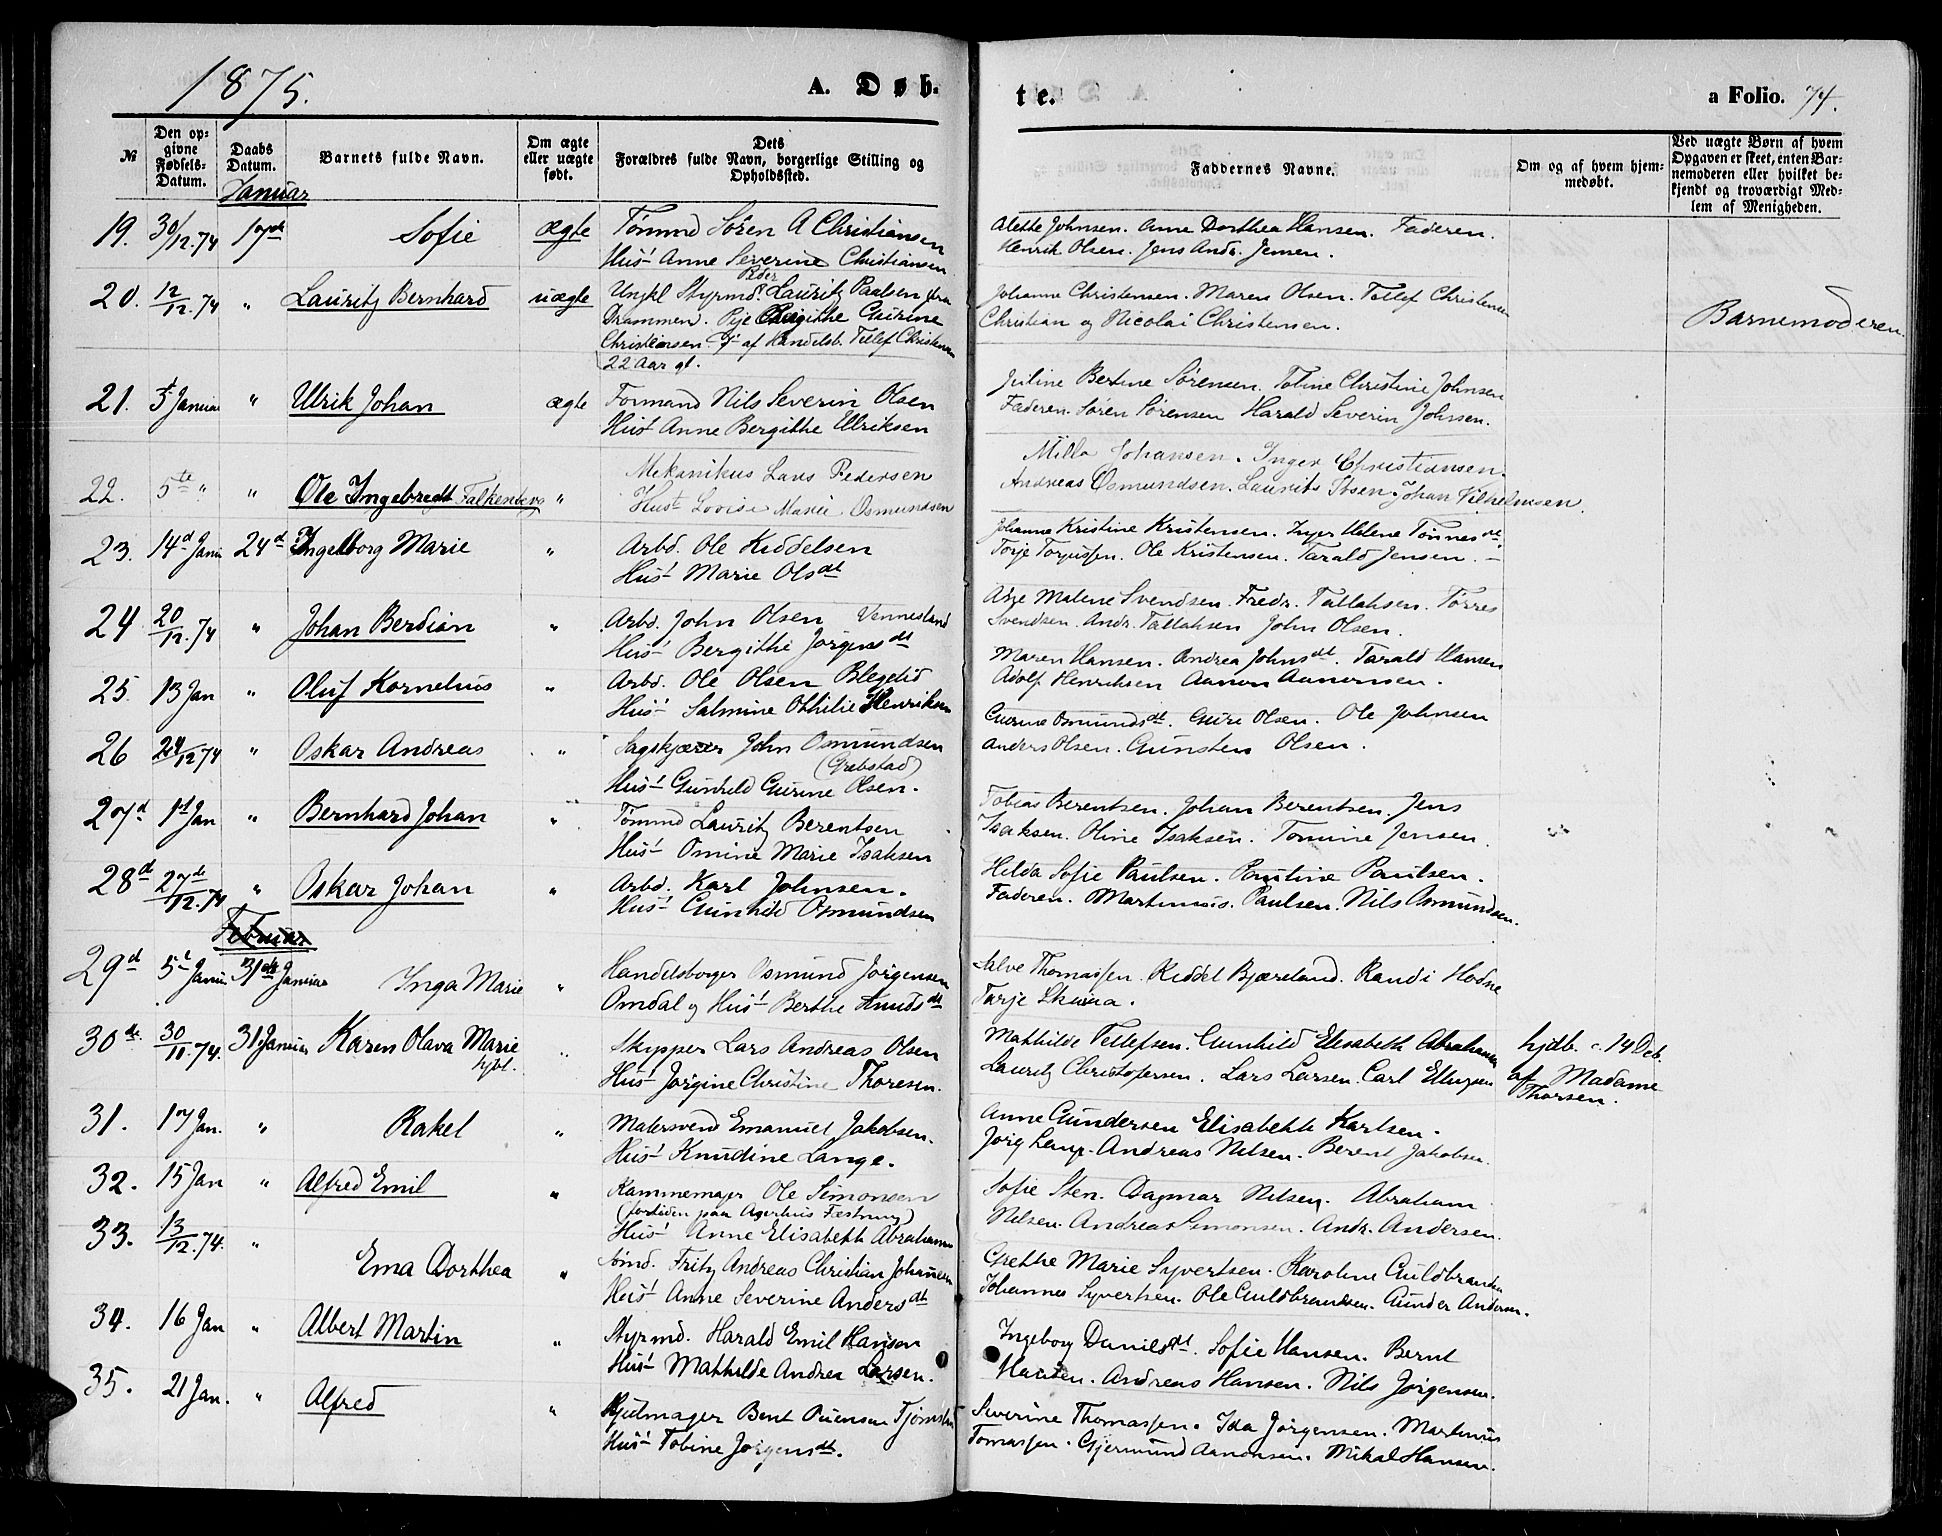 1875.
A. Døb-
№
Den op-
givne
Fødsels-
Datum.
Daabs
Datum.
Barnets fulde Navn.
Om ægte
eller uægte
født.
Dets
Forældres fulde Navn, borgerlige Stilling og
Opholdssted.
Januar
19. 30/12.74 17de Sofie ægte Tømmd Sören A Christiansen
Hus! Anne Severine Christiansen
20. 12/12.74 " Lauritz Bernhard uægte Ungkl Styrmd. Peder Lauritz Paulsen fra
Drammen. Pige Bergithe Guirine
Christiansen D. af Handelsb. Tellef Christensen
22 Aar gl.
21. 5t Januar " Ulrik Johan ægte Formand Nils Severin Olsen
Hus! Anne Bergithe Ulriksen
22. 5te " " Ole Ingebredt Falkenberg " Mekanikus Lars Pedersen
Hust Lovise Marie Osmundsen
23. 14d Janu 24d Ingeborg Marie " Arbd. Ole Kiddelsen
Hus! Marie Olsdt
24 20/12.74 " Johan Berdian " Arbd. John Olsen Vennesland
Hus! Bergithe Jörgensdt
25. 13 Jan " Oluf Kornelius " Arbd. Ole Olsen Blegelid
Hus! Salmine Othilie Henriksen
26 24/12 74 " Oskar Andreas " Sagskjærer John Osmundsen
(Grebstad)
Hus! Gunhild Gurine Olsen.
27d 1st Jan " Bernhard Johan " Tömmd Lauritz Berentsen
Hus! Omine Marie Isaksen
28d 27de/12.74 " Oskar Johan " Arbd. Karl Johnsen.
Hus! Gunhild Osmundsen
Februar
29d 5t Janu 31de Januar Inga Marie " Handelsborger Osmund Jörgensen
Omdal og Hus! Berthe Knudsdt
30de 30/11.74. 31. Januar Karen Olava Marie " Skypper Lars Andreas Olsen
hjdt. Hus! Jörgine Christine Thoresen.
31. 17 Jan. " Rakel " Malersvend Emanuel Jakobsen.
Hus! Knudine Lange.
32. 15 Jan " Alfred Emil " Kammemager Ole Simonsen
(fortiden paa Agerhus Fæstning)
Hus! Anne Elisabeth Abrahams
33. 13/12.74. " Ema Dorthea " Tömd. Fritz Andreas Christian Johansen
Hus! Anne Severine Andersdt
34. 16 Jan " Albert Martin " Styrmd. Harald Emil Hansen
Hus! Mathilde Andrea Larsen.
35. 21 Jan. " Alfred " Hjulmager Bent Tjömsland
Hus! Tobine Jörgensdt.
te.
a Folio. 74.
Faddernes Navne.
Om og af hvem hjem-
medøbt.
Ved uægte Børn af hvem
Opgaven er skeet, enten Bar-
nemoderen eller hvilket be-
kjendt og troværdigt Med-
lem af Menigheden.
Alette Johnsen. Anne Dorthea Hansen. Faderen.
Henrik Olsen. Jens Andr. Jensen.
Johanne Christensen. Maren Olsen. Tellef Christensen
Christian og Nicolai Christensen. Barnemoderen
Juline Bertine Sørensen. Tobine Christine Johnsen
Faderen. Sören Sørensen Harald Severin Johnsen.
Milla Johansen. Inger Christiansen.
Andreas Osmundsen. Laurits Ibsen. Johan Vilhelmsen.
Johanne Kristine Kristensen. Inger Helene Tönnesdt.
Torje Torjussen. Ole Kristensen. Tarald Jensen. –
Asje Malene Svendsen. Fredr. Tallaksen. Torres
Svendsen. Andr. Tallaksen John Olsen.
Maren Hansen. Andrea Johnsdt. Tarald Hansen
Adolf Henriksen Aanon Aanonsen.
Gurine Osmundsdt. Gure Olsen. Ole Johnsen
Anders Olsen. Gunsten Olsen.
Tobias Berentsen. Johan Berentsen. Jens
Isaksen. Oline Isaksen. Tomine Jensen.
Helda Sofie Paulsen. Pauline Paulsen.
Faderen. Martinius. Paulsen. Nils Osmundsen.
Salve Thomassen. Kiddel Bjæreland. Randi Hodne
Tarje Skuaa.
Mathilde Tellefsen. Gunhild Elisabeth Abrahamsen hjdb. 14 Deb.
Lauritz Christofersen. Lars Larsen. Carl Ellingsen af Madame
Thorsen.
Anne Gundersen Elisabeth Karlsen.
Jörg Lange. Andreas Nilsen. Berent Jakobsen.
Sofie Sten. Dagmar Nilsen. Abraham
Nilsen. Andreas Simonsen. Andr. Andersen.
Grethe Marie Syvertsen. Karoline Guldbrandsen
Johannes Syvertsen. Ole Guldbrandsen. Gunder Andersen.
Ingeborg Danielsdt. Sofie Hansen. Bernt
Hansen. Andreas Hansen. Nils Jörgensen.
Severine Thomassen. Ida Jörgensen. Martinius
Tomassen. Gjermund Aanonsen. Mikal Hansen.